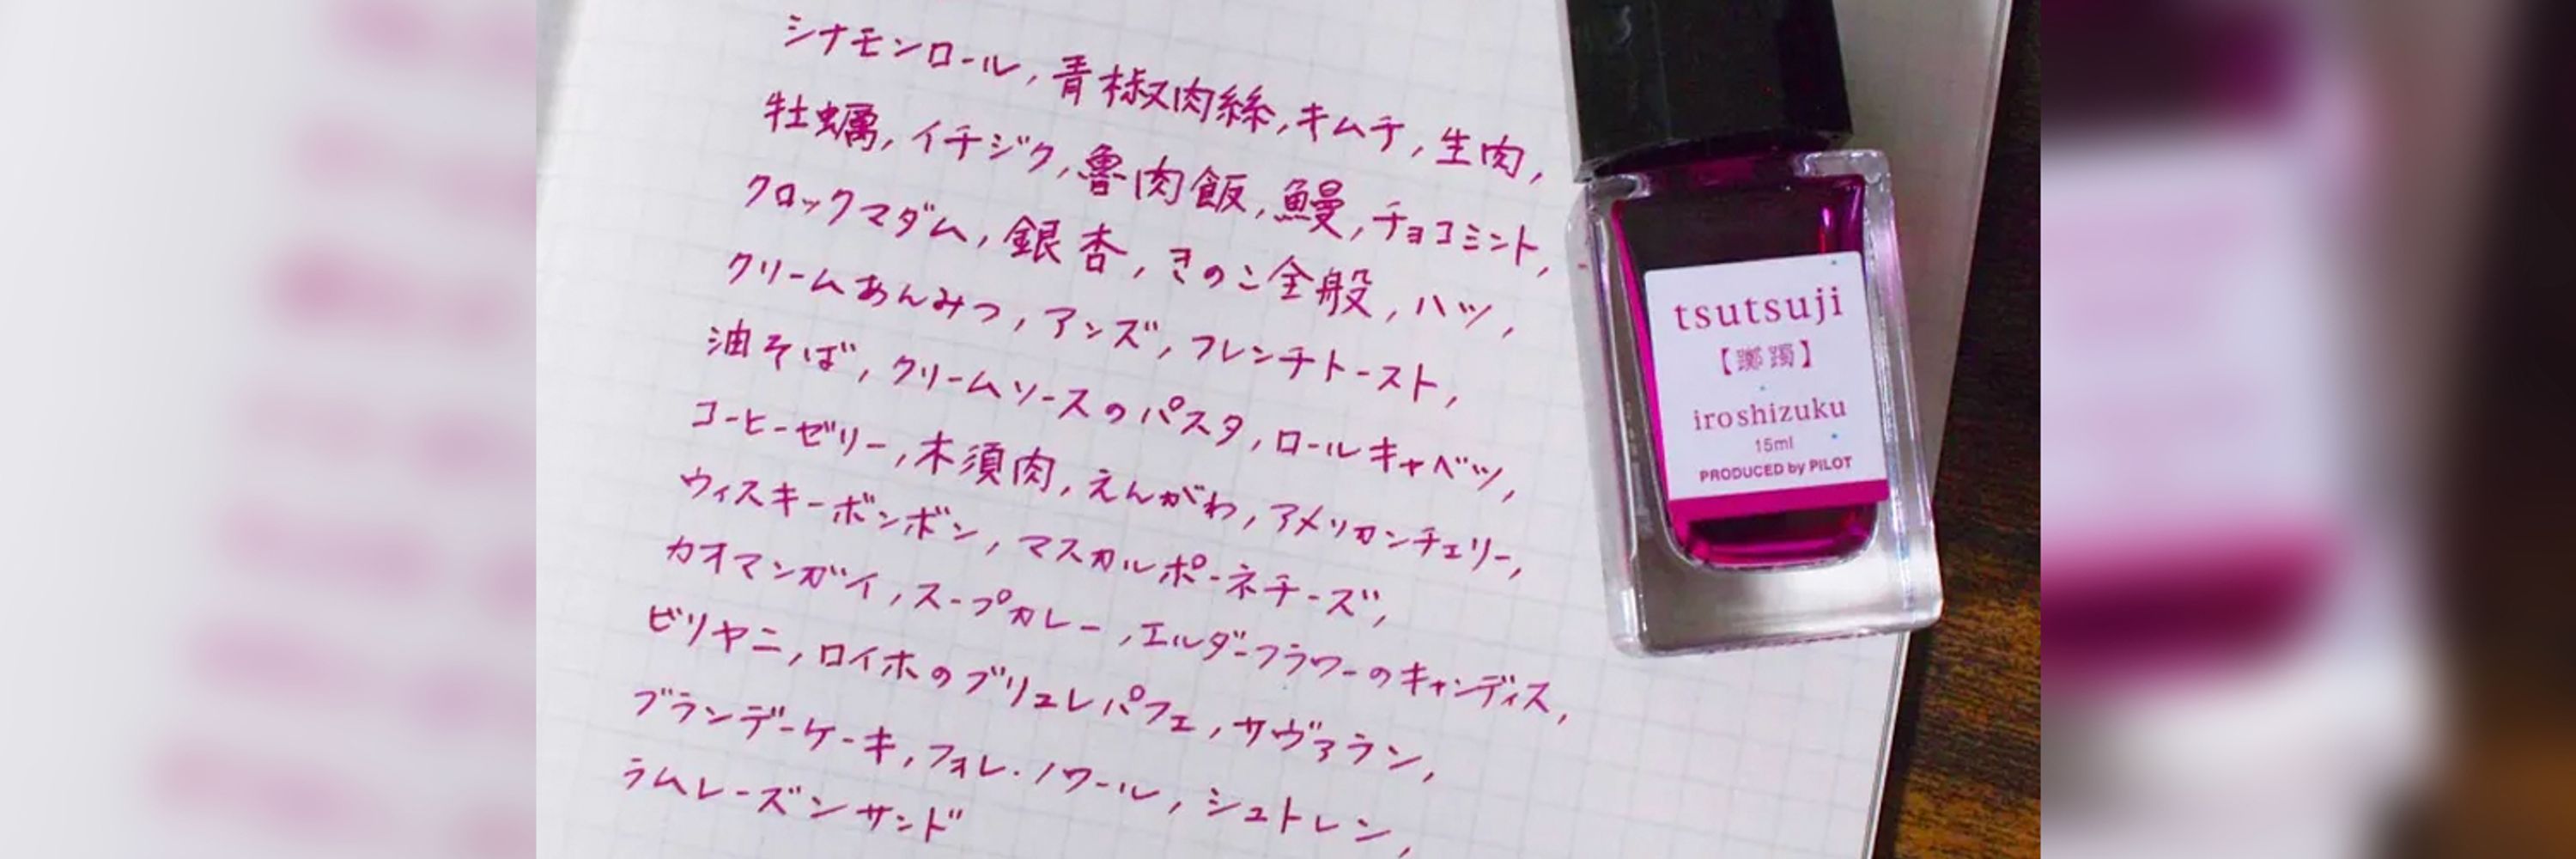 シナモンロール, 青椒肉絲, キムチ, 生肉,
牡蠣, イチジク, 魯肉飯, 鰻, チョコミント,
クロックマダム, 銀杏, きのこ全般, ハツ,
クリームあんみつ, アンズ, フレンチトースト,
油そば, クリームソースのパスタ, ロールキャベツ,
コーヒーゼリー, 木須肉, えんがわ, アメリカンチェリー,
ウィスキーボンボン, マスカルポーネチーズ,
カオマンガイ, スープカレー, エルダーフラワーのキャンディス,
ビリヤニ, ロイホのブリュレパフェ, サヴァラン,
ブランデーケーキ, フォレ・ノワール, シュトレン,
ラムレーズンサンド
tsutsuji
【躑躅】
iroshizuku
15ml
PRODUCED by PILOT